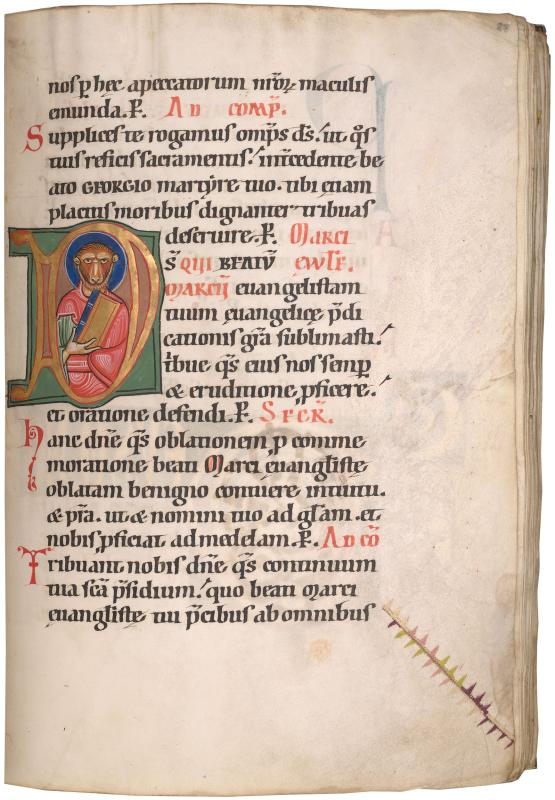 nos p hec a peccatorum nr̄oꝝ maculis
emunda. P. AD COMP̄.
Supplices te rogamus om̄ps d̄s. ut q̄s
tuis reficis sacramentis. int̄cedente be
ato GEORGIO martyre tuo. tibi etiam
placitis moribus dignanter tribuas
deseruire. P. Marci
D̄s QUI BEATŪ EW̄L̄E.
MARCU euangelistam
tuum euangelicę p̄di
cationis gr̄a sublimasti.
tribue q̄s eius nos semp̄
& eruditione p̄ficere.
et oratione defendi. P. SECR̄.
Hanc dn̄e q̄s oblationem p comme
moratione beati Marci euangl̄istę
oblatam benigno contuere intuitu.
& p̄ra. ut & nomini tuo ad gl̄am. et
nobis p̄ficiat ad medelam. P. AD CŌ
Tribuant nobis dn̄e q̄s continuum
tua sc̄a p̄sidium. quo beati Marci
euangl̄istę tui p̄cibus ab omnibus